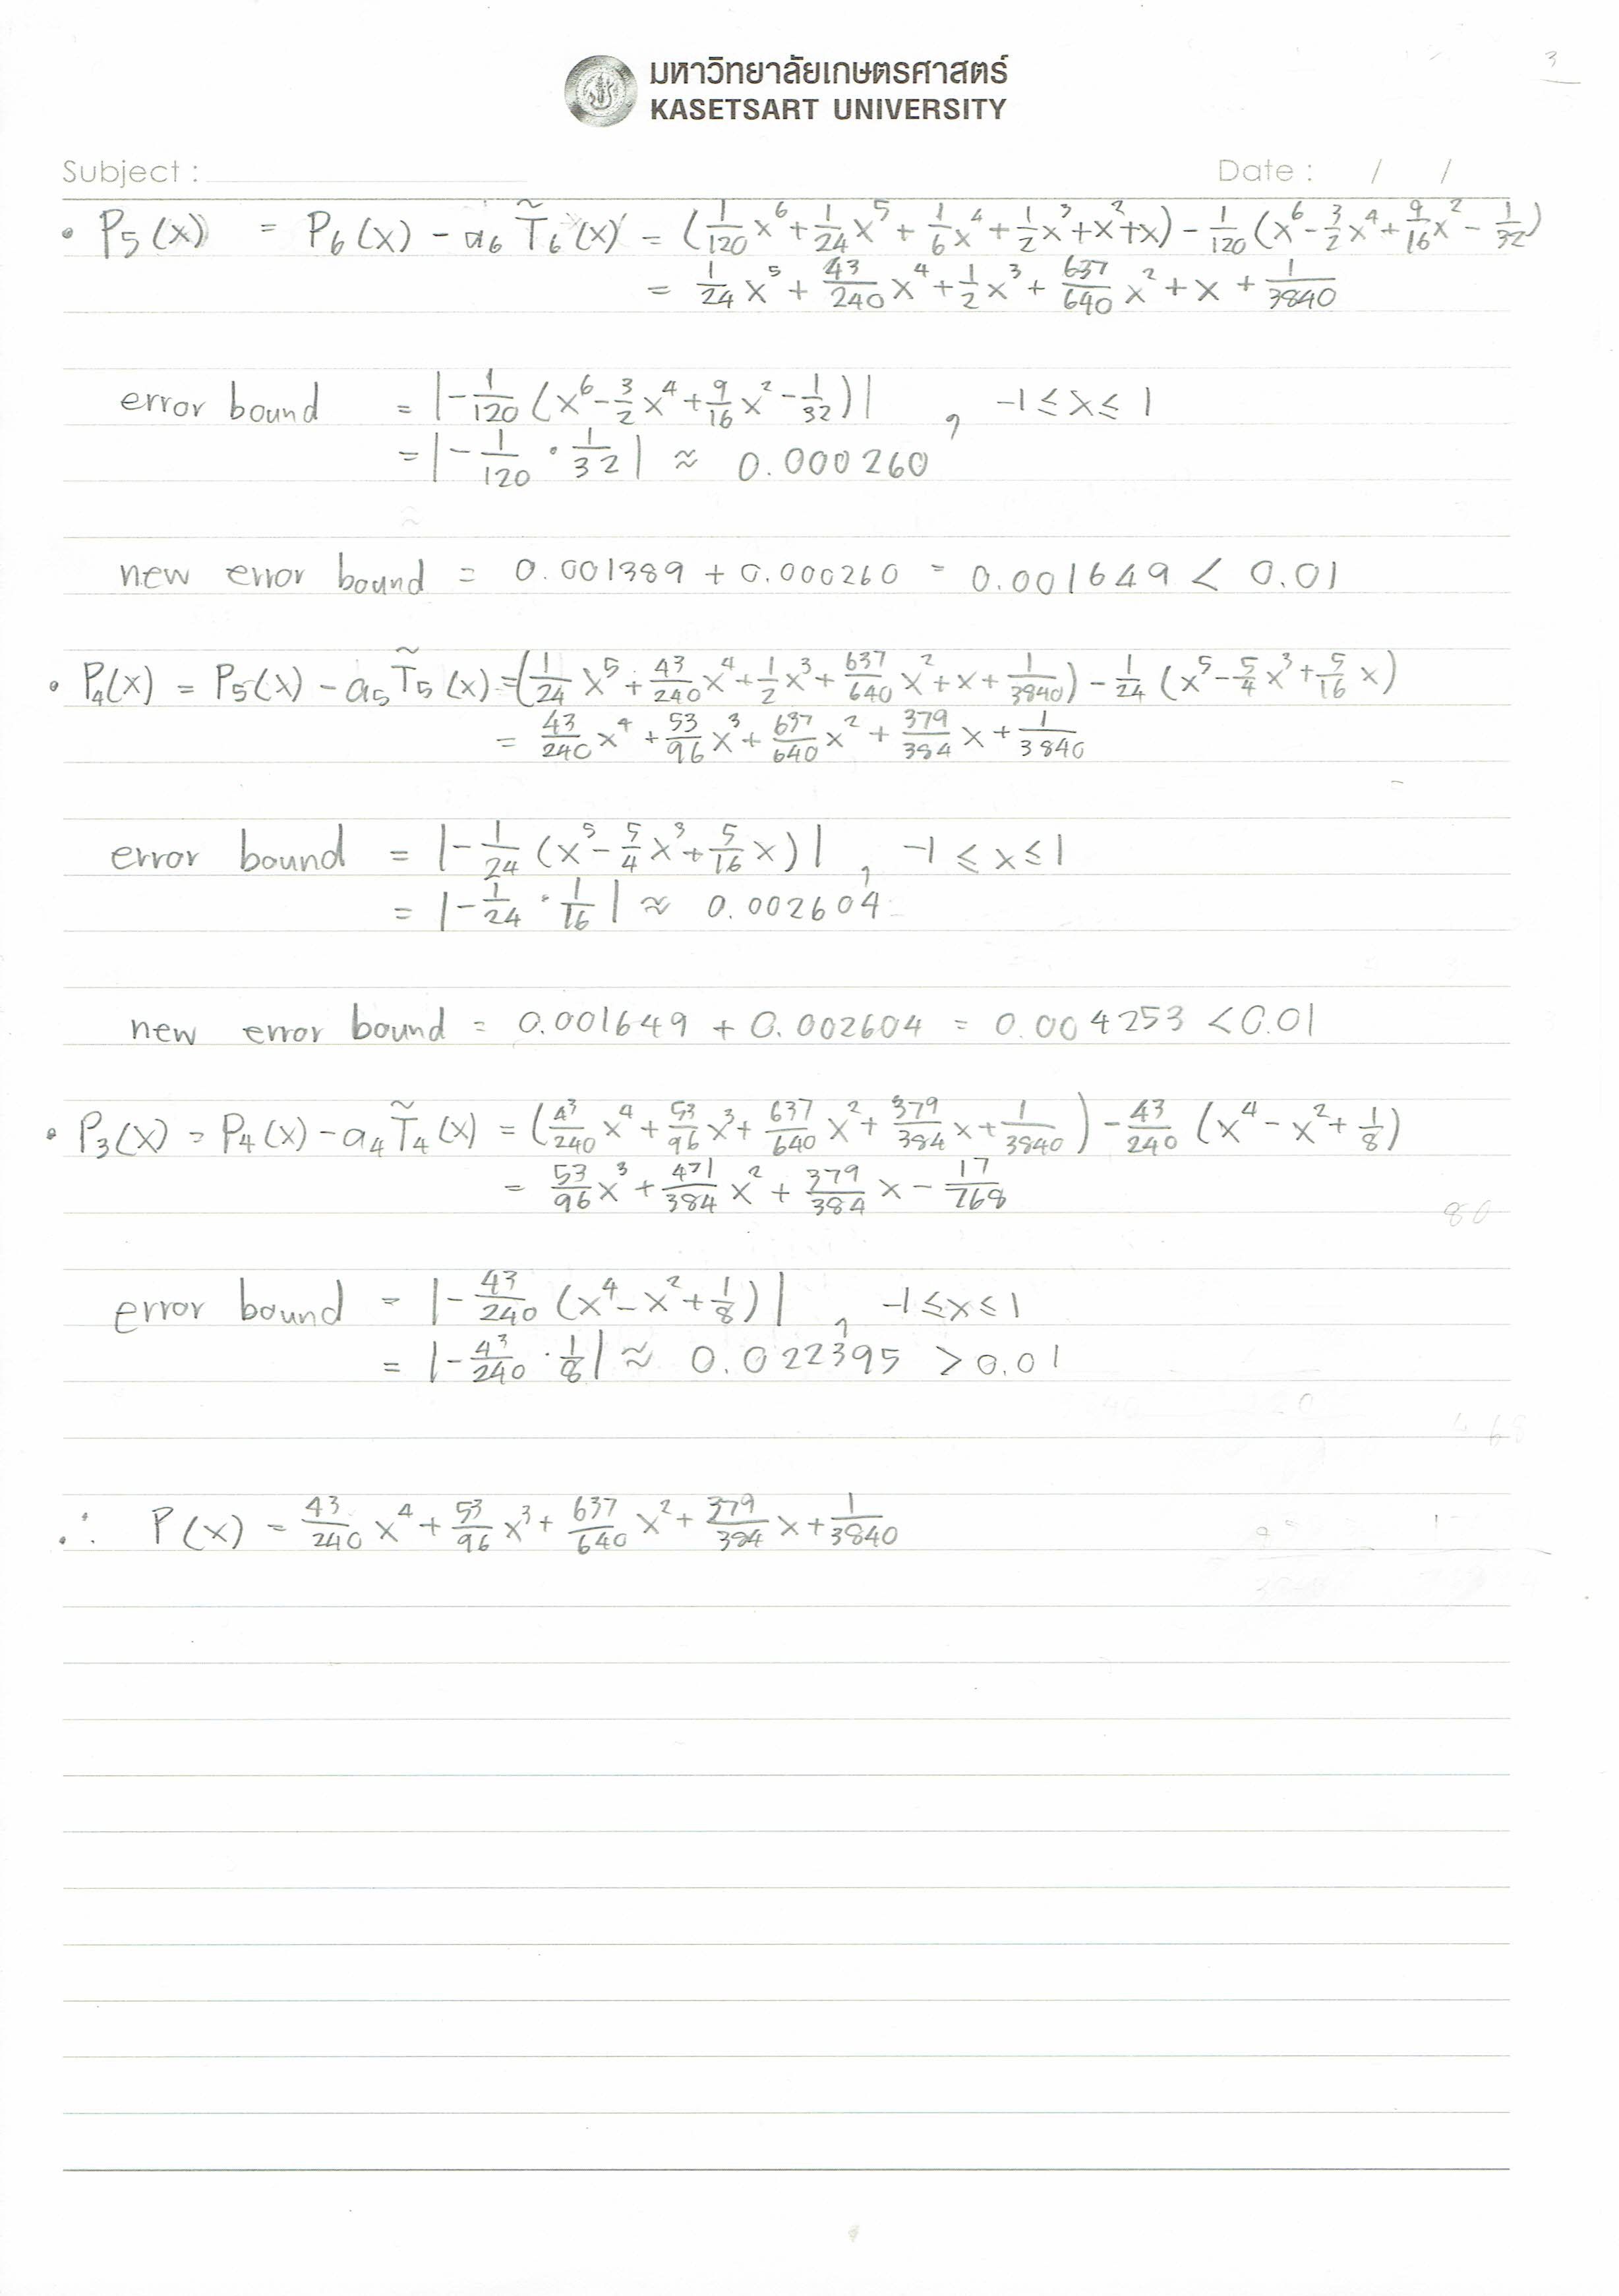 3
มหาวิทยาลัยเกษตรศาสตร์
KASETSART UNIVERSITY
Subject : Date : / /
• P₅(x) = P₆(x) - a₆ T̃₆(x) = (1/120 x⁶ + 1/24 x⁵ + 1/6 x⁴ + 1/2 x³ + x² + x) - 1/120 (x⁶ - 3/2 x⁴ + 9/16 x² - 1/32)
= 1/24 x⁵ + 43/240 x⁴ + 1/2 x³ + 637/640 x² + x + 1/3840
error bound = |-1/120 (x⁶ - 3/2 x⁴ + 9/16 x² - 1/32)| , -1 ≤ x ≤ 1
= |-1/120 · 1/32| ≈ 0.000260
new error bound = 0.001389 + 0.000260 = 0.001649 < 0.01
• P₄(x) = P₅(x) - a₅ T̃₅(x) = (1/24 x⁵ + 43/240 x⁴ + 1/2 x³ + 637/640 x² + x + 1/3840) - 1/24 (x⁵ - 5/4 x³ + 5/16 x)
= 43/240 x⁴ + 53/96 x³ + 637/640 x² + 379/384 x + 1/3840
error bound = |-1/24 (x⁵ - 5/4 x³ + 5/16 x)| , -1 ≤ x ≤ 1
= |-1/24 · 1/16| ≈ 0.002604
new error bound = 0.001649 + 0.002604 = 0.004253 < 0.01
• P₃(x) = P₄(x) - a₄ T̃₄(x) = (43/240 x⁴ + 53/96 x³ + 637/640 x² + 379/384 x + 1/3840) - 43/240 (x⁴ - x² + 1/8)
= 53/96 x³ + 471/384 x² + 379/384 x - 17/768
error bound = |-43/240 (x⁴ - x² + 1/8)| , -1 ≤ x ≤ 1
= |-43/240 · 1/8| ≈ 0.022395 > 0.01
∴ P(x) = 43/240 x⁴ + 53/96 x³ + 637/640 x² + 379/384 x + 1/3840